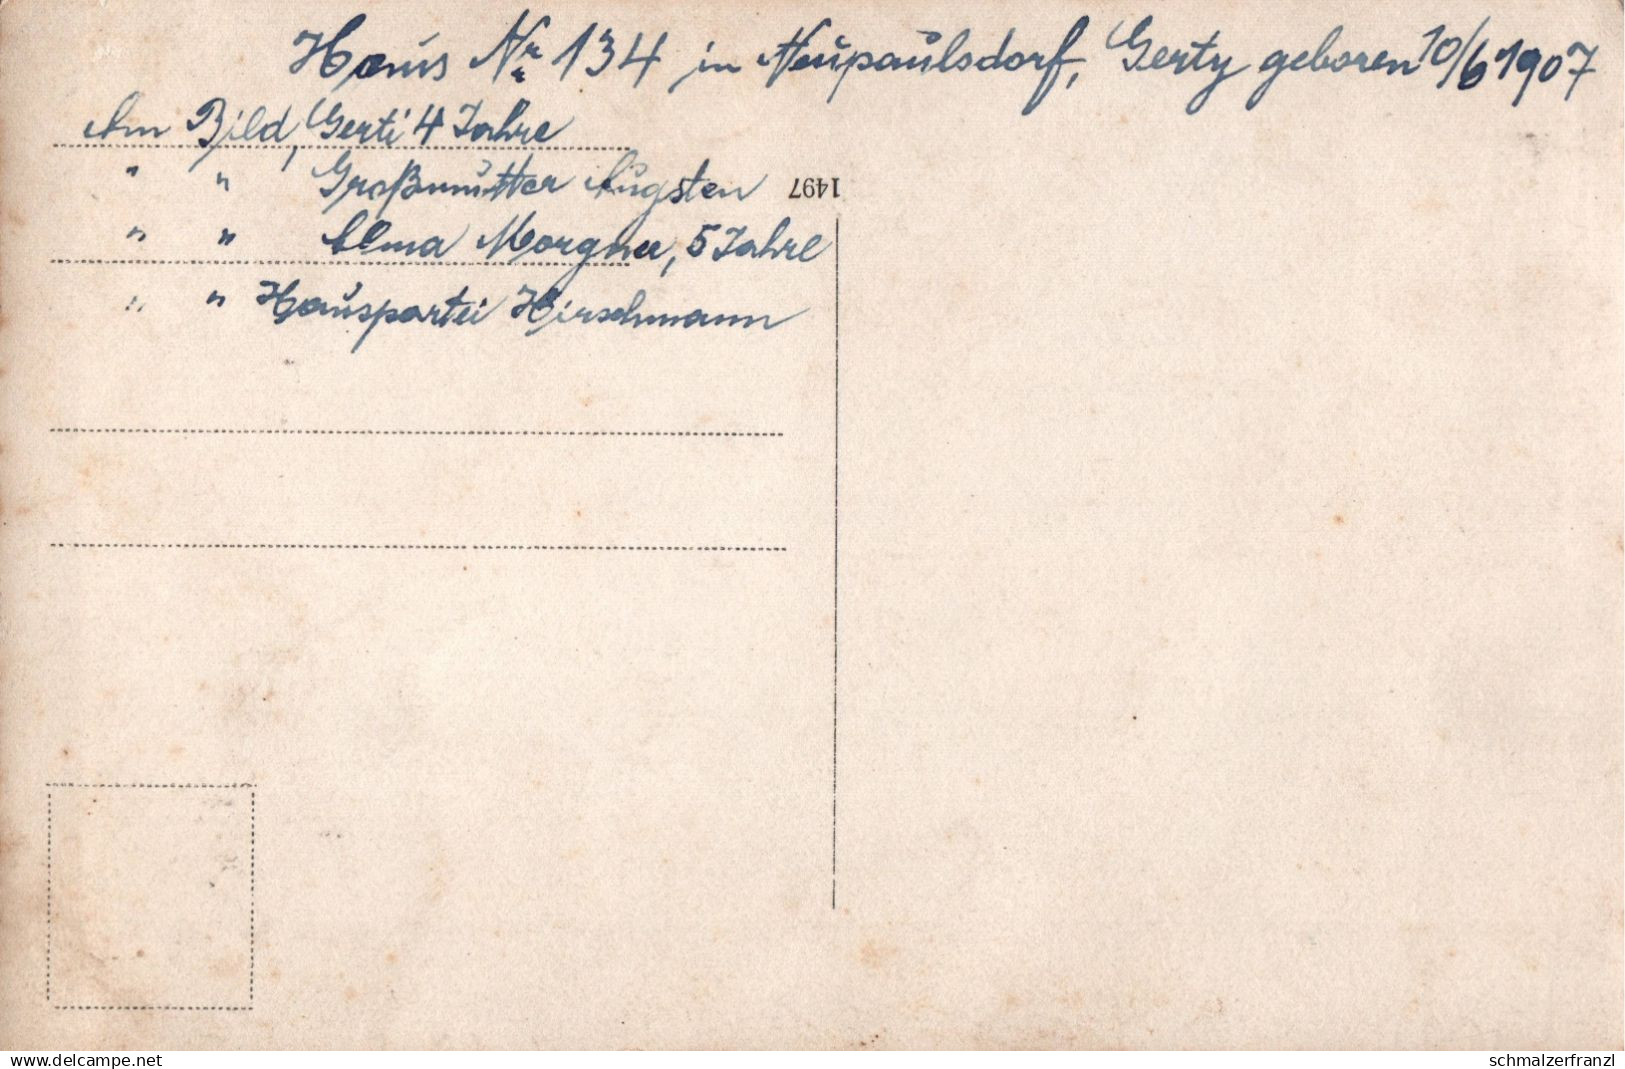 Haus Nr. 134 in Neupaulsdorf, Gerty geboren 10/6 1907
Am Bild, Gerti 4 Jahre
" " Großmutter Augsten
" " Alma Morgner, 5 Jahre
" " Hauspartei Hirschmann
1497
© www.delcampe.net
schmalzerfranzl